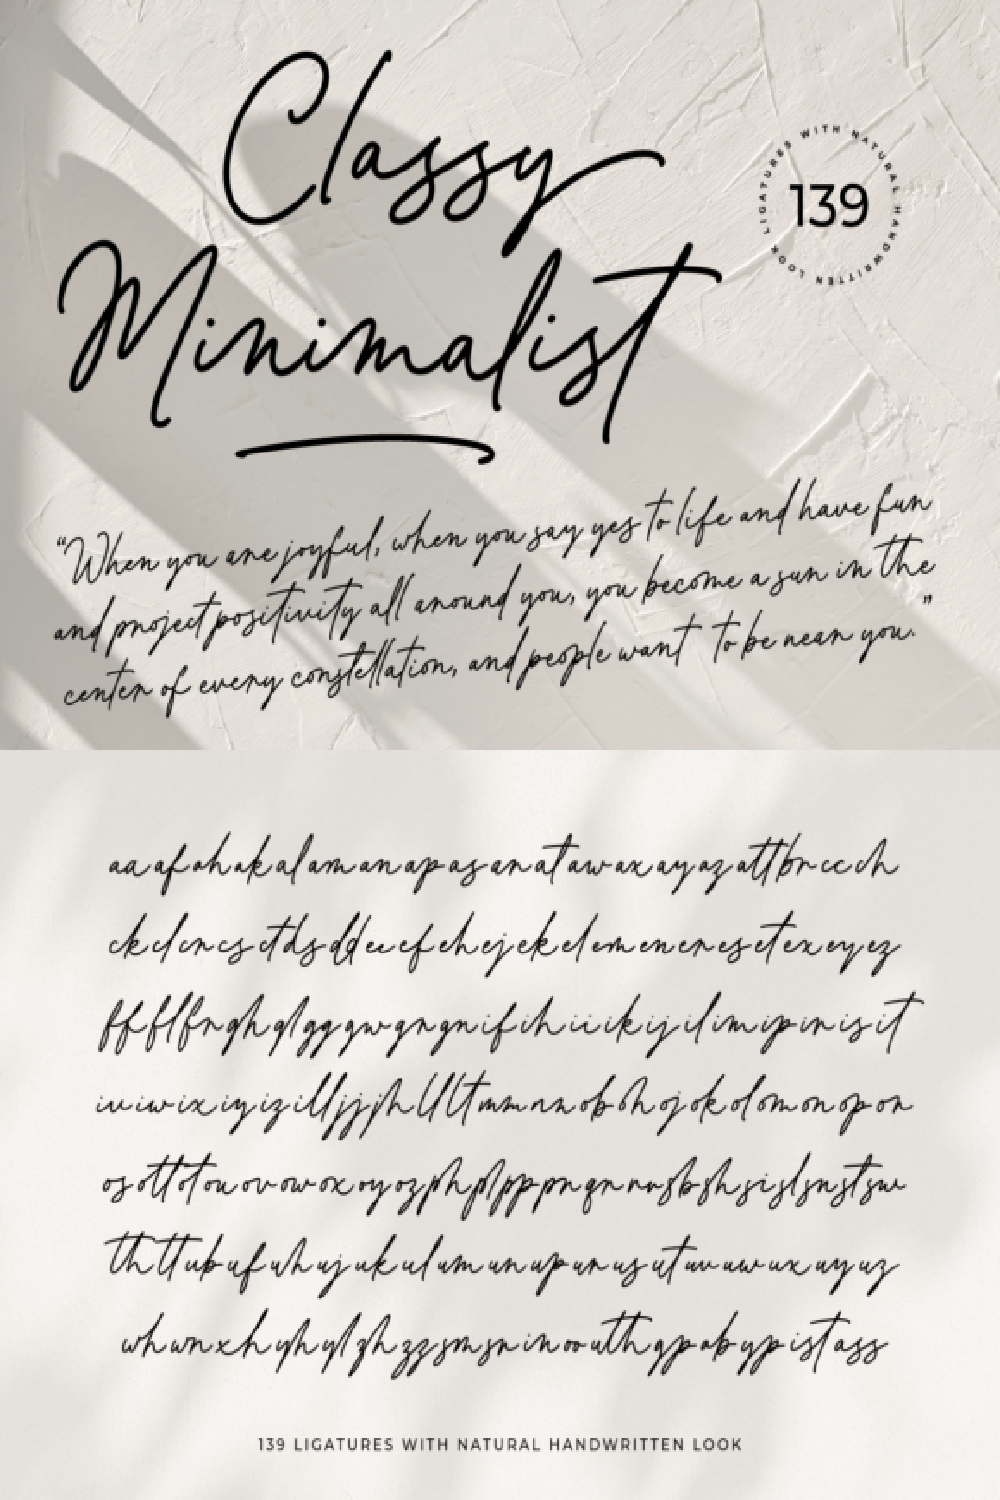 Classy
Minimalist
LIGATURES WITH NATURAL HANDWRITTEN LOOK
139
“When you are joyful, when you say yes to life and have fun
and project positivity all around you, you become a sun in the
center of every constellation, and people want to be near you.”
aa af ah ak al am an ap as ar at aw ax ay az att br cc ch
ck cl cr cs ct ds dd ee ef eh ej ek el em en er es et ex ey ez
ff fl fr gh gl gg gw gr gn if ih ii ik ij il im ip in is it
iv iw ix iy iz ill jj jh ll lt mm nn ob oh oj ok ol om on op or
os ott ot ou ov ow ox oy oz ph pl pp pr qr rr sb sh si sl sn st sw
th tt ub uf uh uj uk ul um un up ur us ut uv uw ux uy uz
wh wn xh yh yl zh zz sm sr in oo uth gp ab yp ist ass
139 LIGATURES WITH NATURAL HANDWRITTEN LOOK